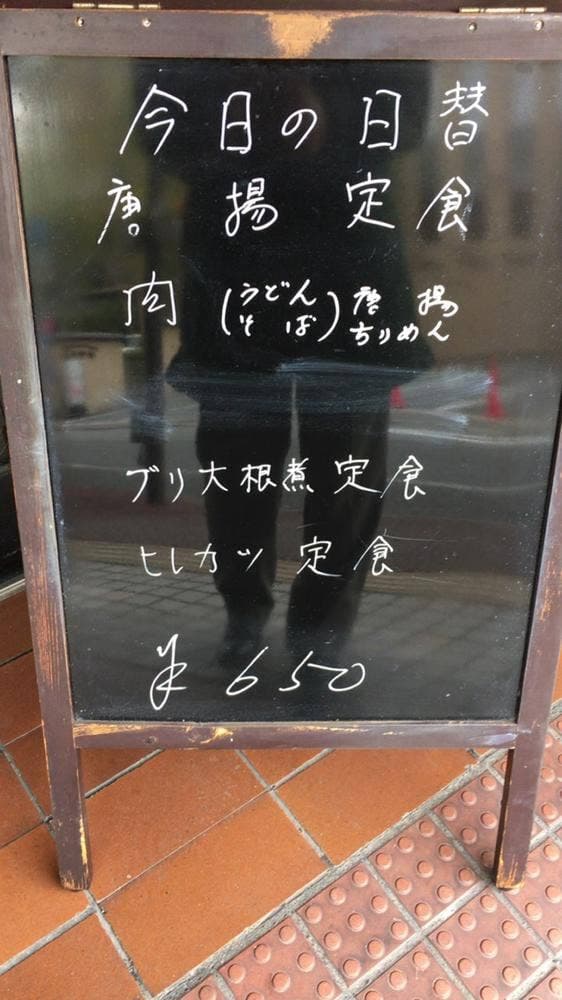 今日の日替
唐揚定食
肉(うどん そば)唐揚ちりめん
ブリ大根煮定食
ヒレカツ定食
¥650